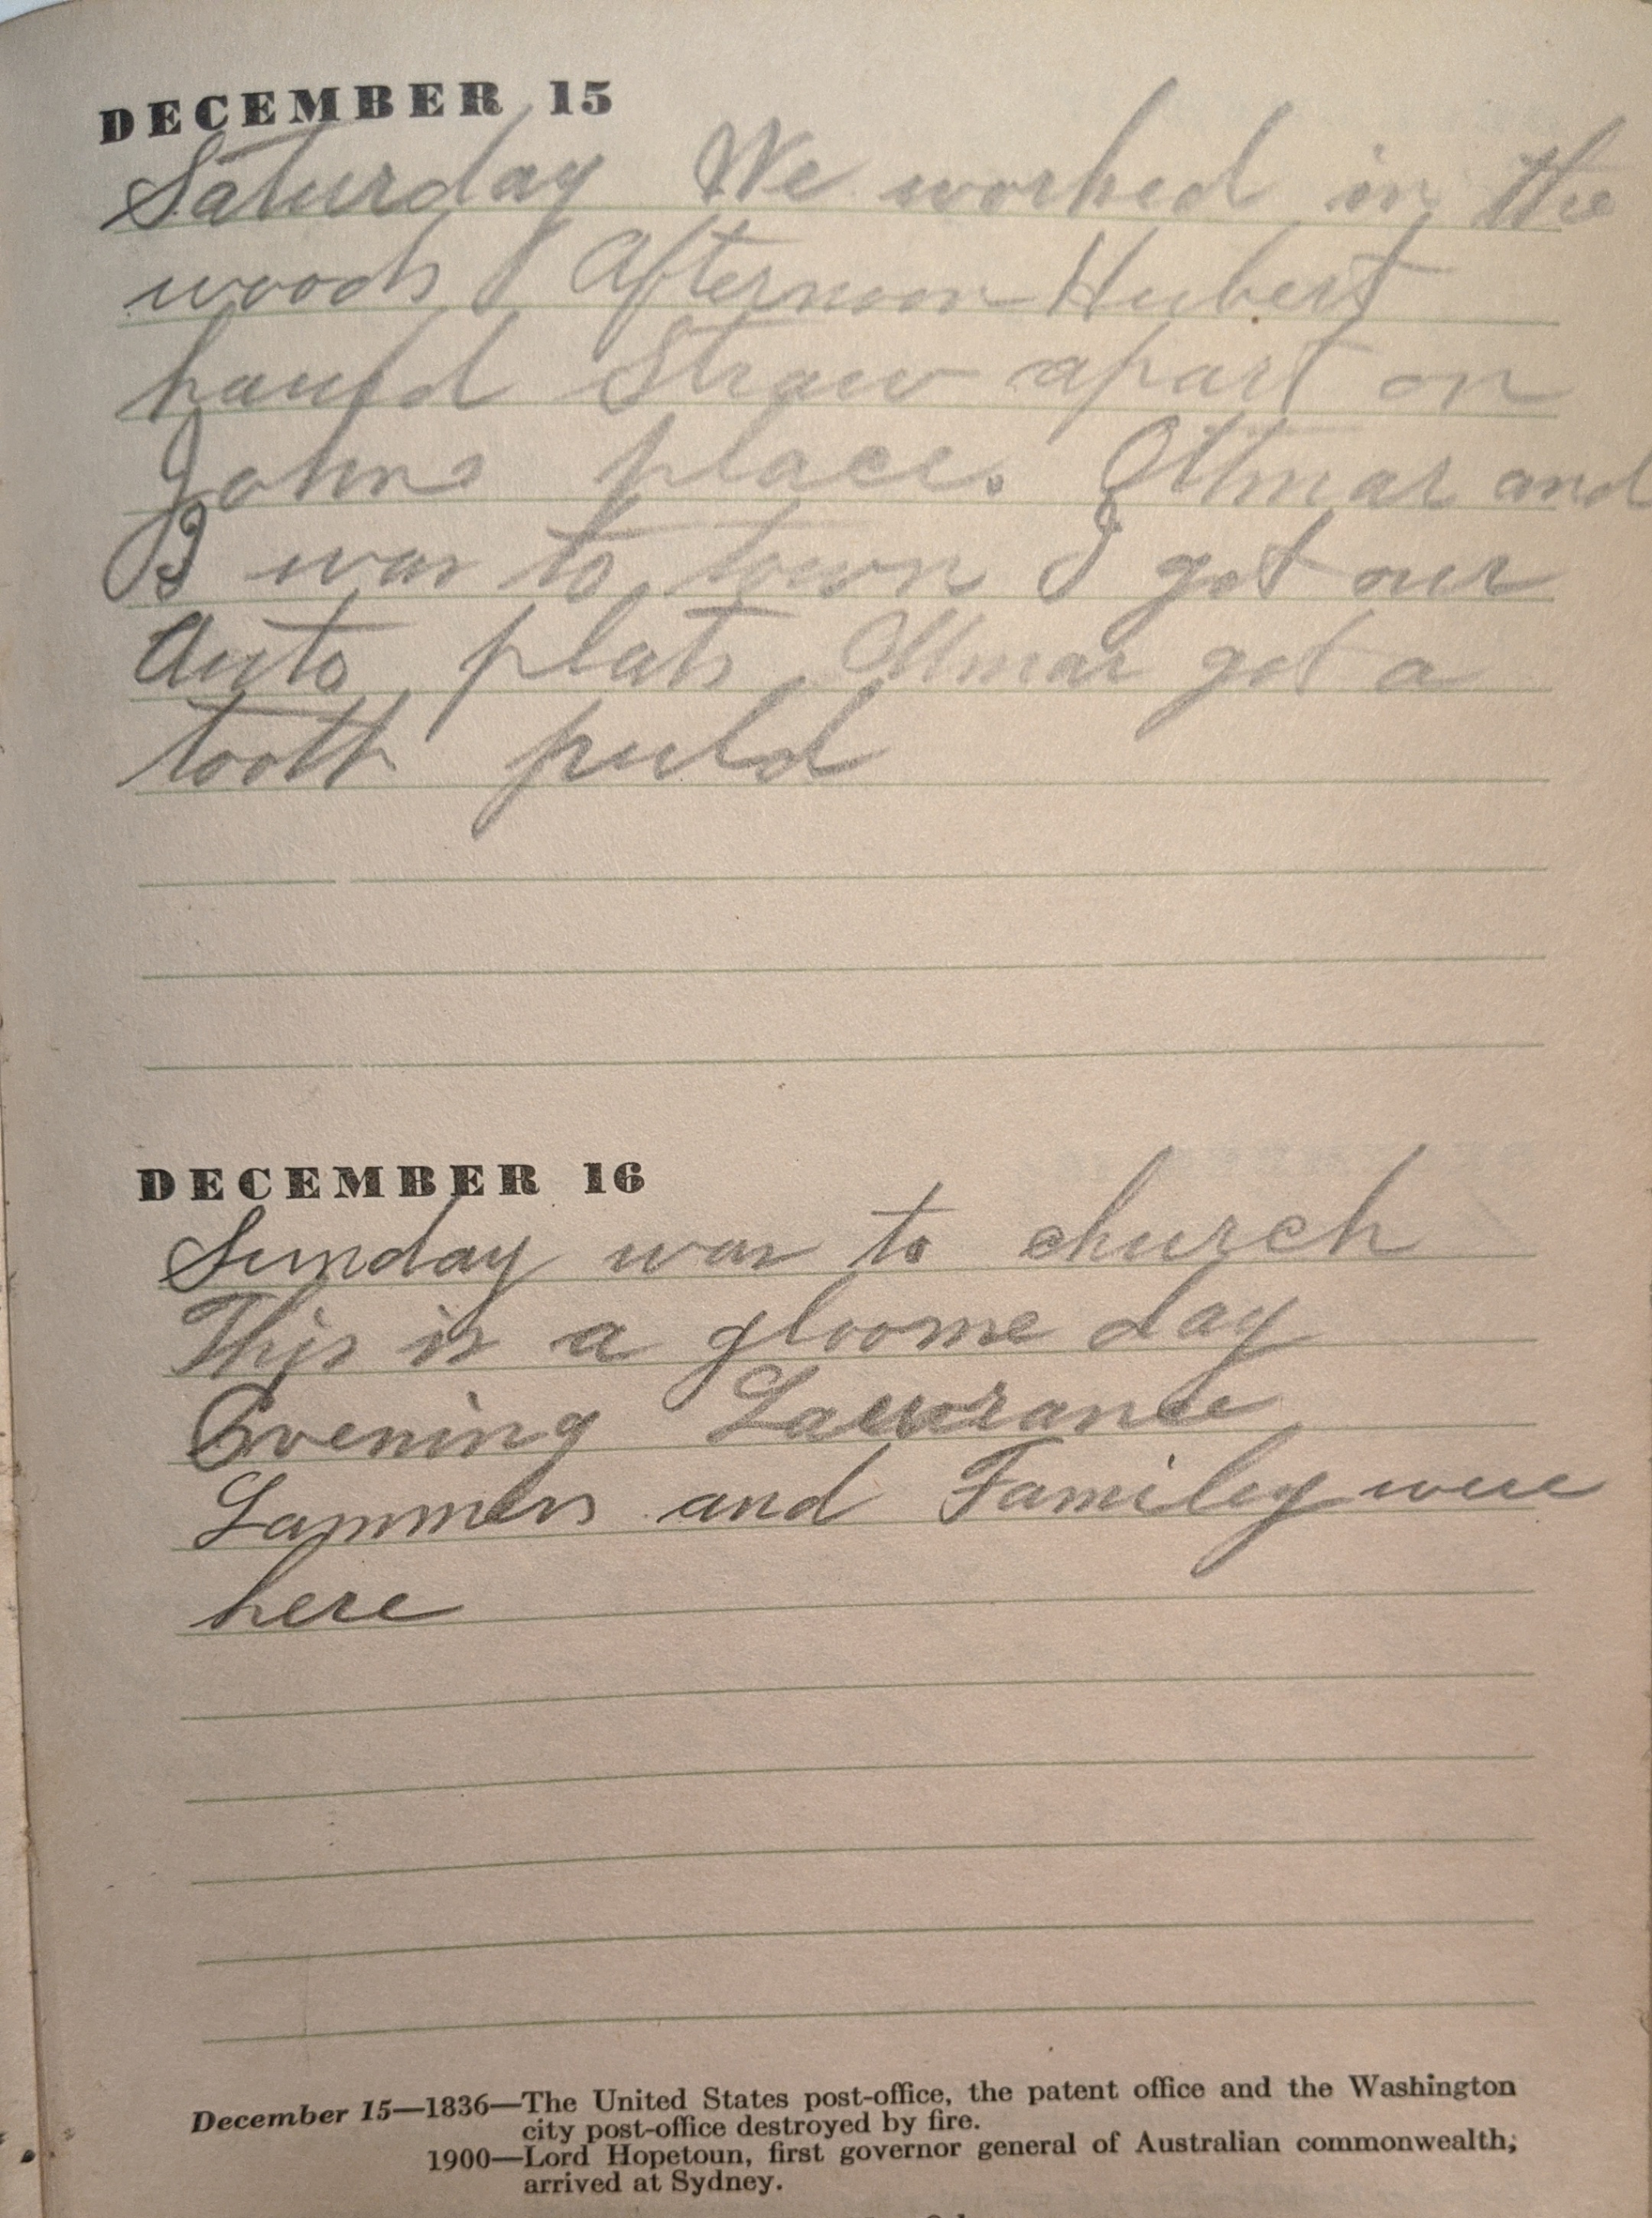 DECEMBER 15
Saturday We worked in the
woods Afternoon Hubert
hauld Straw apart on
Johns place. Ottmar and
I was to town I got our
Auto plats Ottmar got a
tooth puld
DECEMBER 16
Sunday was to church
This is a gloome day
Evening Lawrance
Lammers and Familey were
here
December 15—1836—The United States post-office, the patent office and the Washington
city post-office destroyed by fire.
1900—Lord Hopetoun, first governor general of Australian commonwealth,
arrived at Sydney.